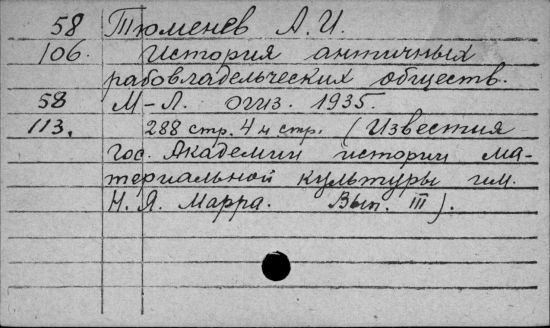 58 Тюменев А. И.
106. История античных
рабовладельческих обществ.
58 М-Л. огиз. 1935.
113. 288 стр. 4 н стр. (Известия
Гос. Академии истории ма-
териальной культуры им.
Н. Я. Марра. Вып. III).